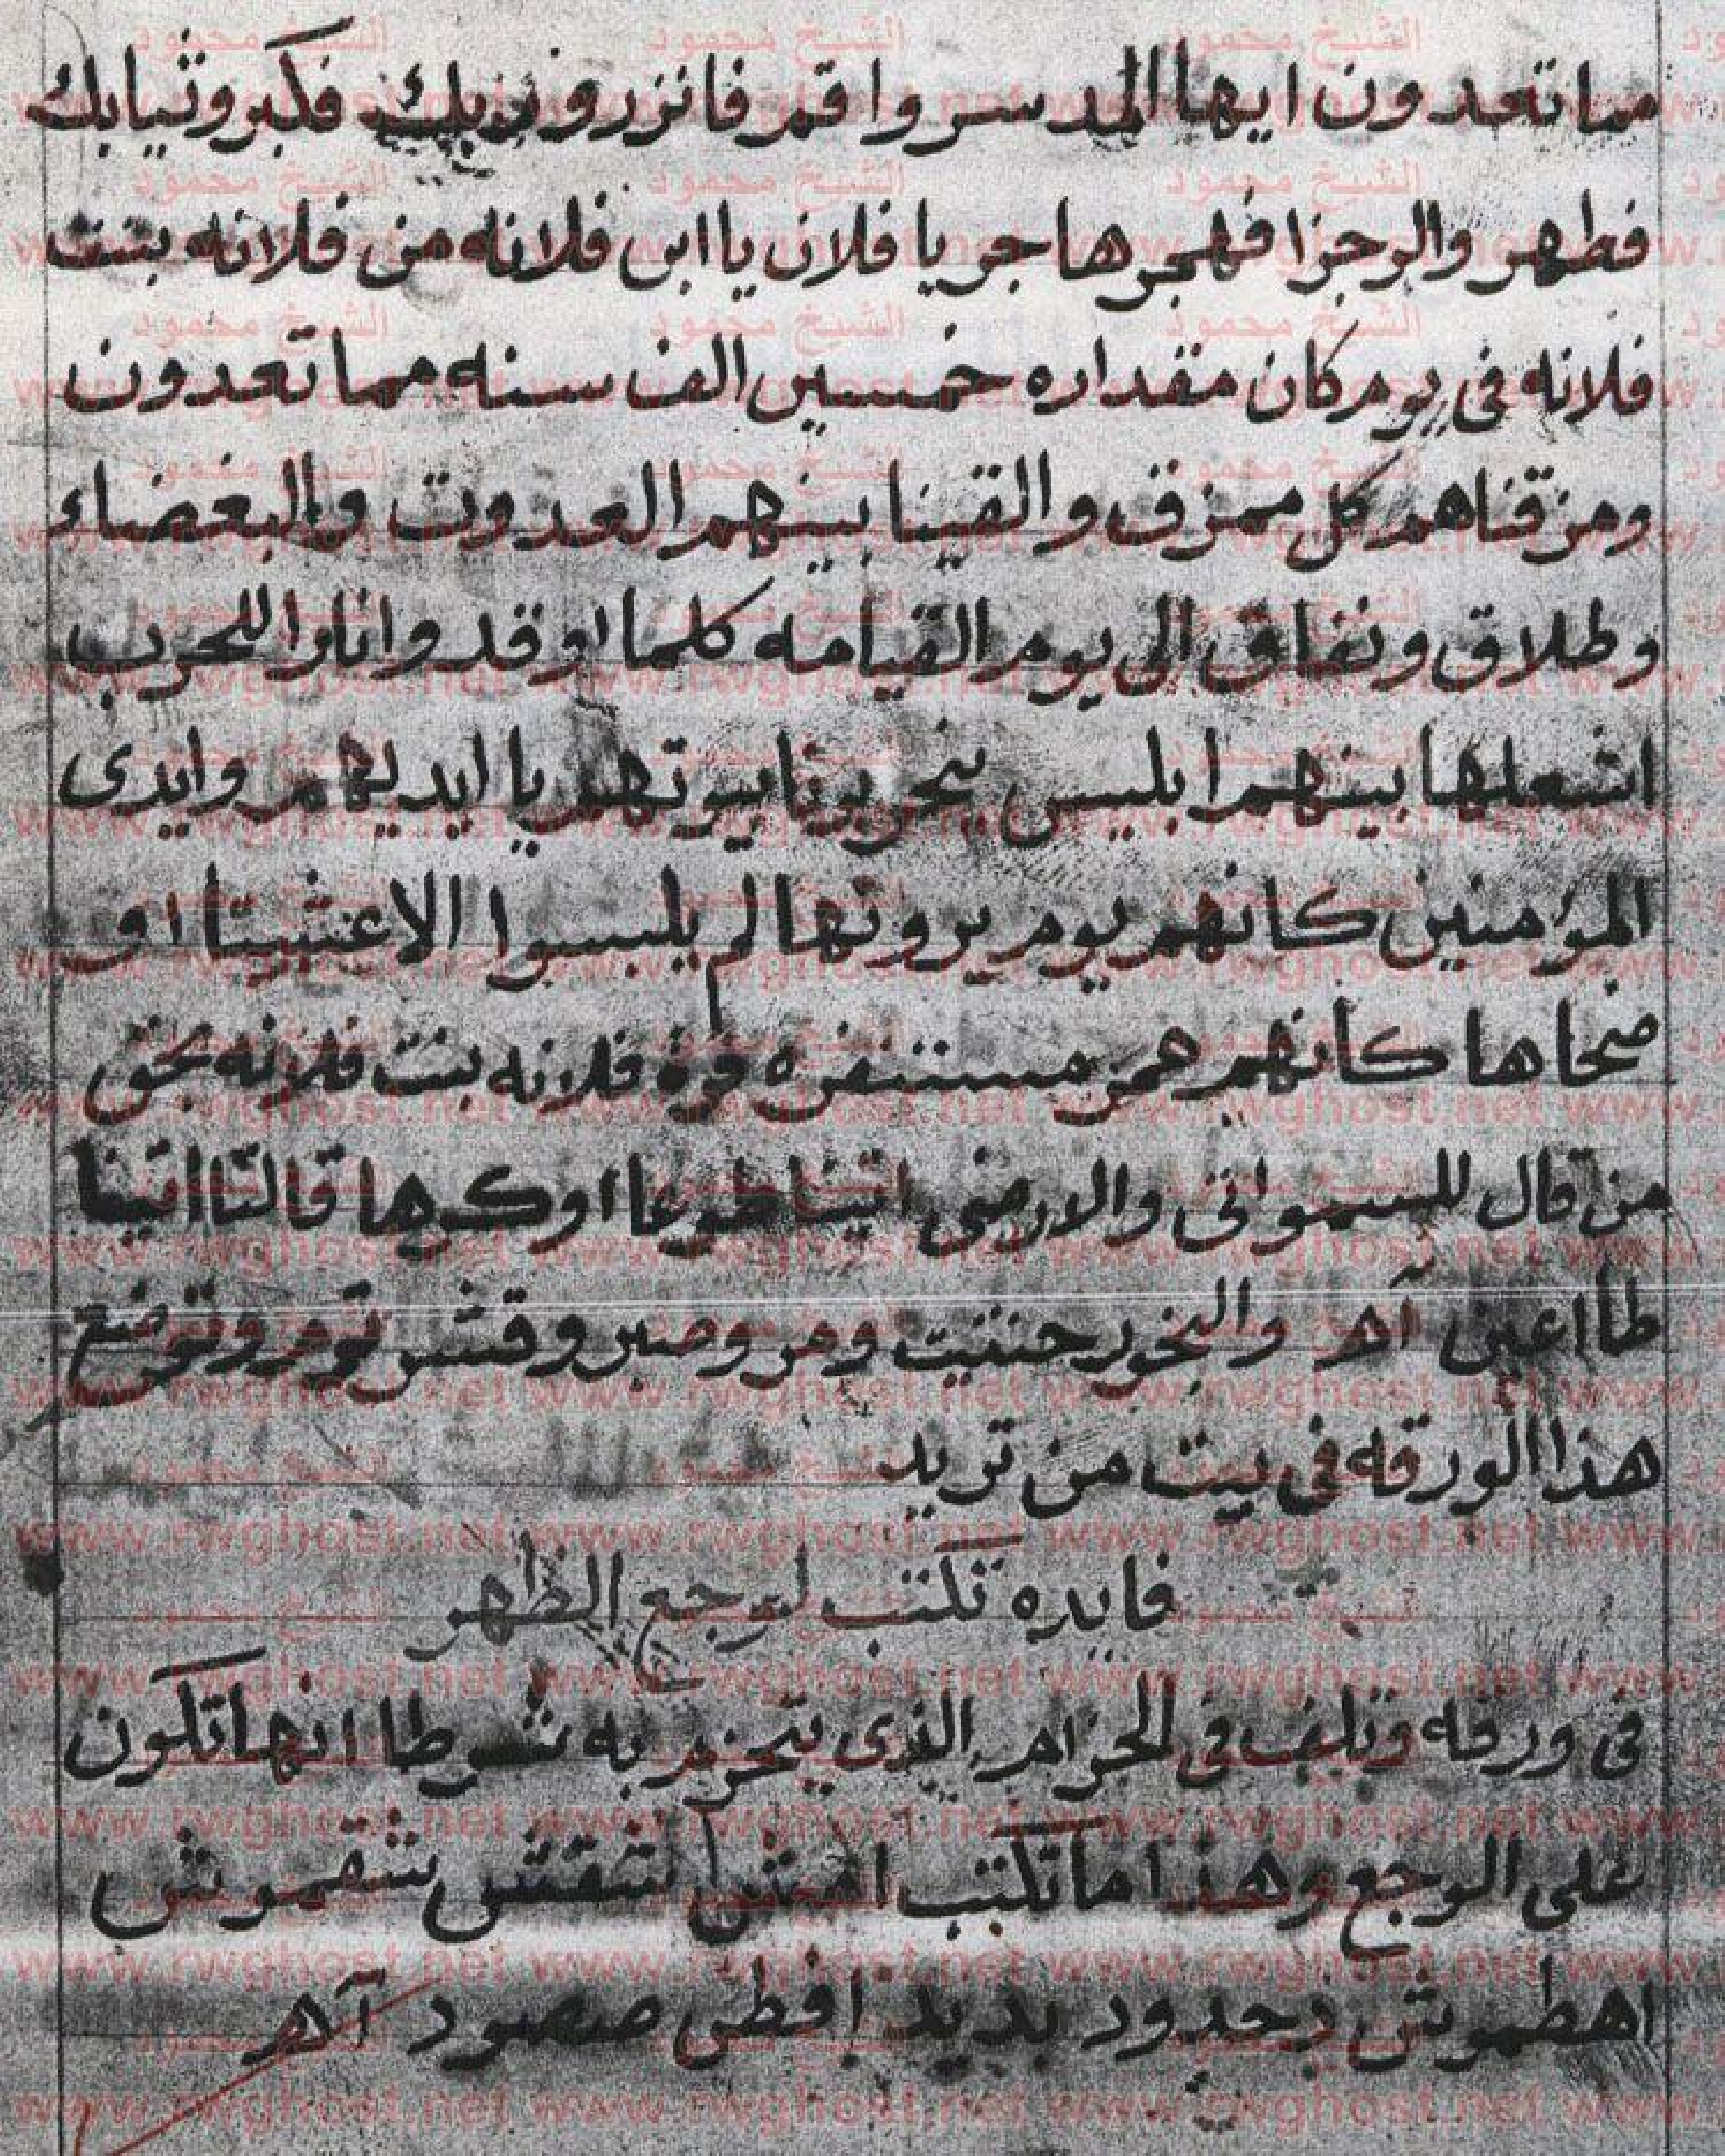 مما تعدون ايها المدسر واقم فانزر وربك فكبر وثيابك
فطهر والرجزا فهجر هاجر يا فلان يا ابن فلانه من فلانه بنت
فلانه فى يوم كان مقداره خمسين الف سنه مما تعدون
ومزقناهم كل ممزق والقينا بينهم العدوت والبغضاء
وطلاق ونفاق الى يوم القيامه كلما اوقدوا نارا للحرب
اشعلها بينهم ابليس يخربونا بيوتهم يا ايديهم وايدى
المؤمنين كانهم يوم يرونها لم يلبسوا الا عشيتا او
ضحاها كانهم حمر مستنفره فرة فلانه بنت فلانه بحق
من قال للسمواتى والارضى اتينا طوعا اوكرها قالتا اتينا
طااعين آهـ والبخور حنتيت ومر وصبر وقشر توم وتوضع
هذا الورقه فى بيت من تريد
فايده تكتب لوجع الظهر
فى ورقه وتلف فى الحزام الذى يتحزم به شرطا انها تكون
على الوجع وهذا ما تكتب شقش شقموش
اهطموش دحدود بديد افطى صصود آهـ
الشيخ محمود
www.rwghost.net